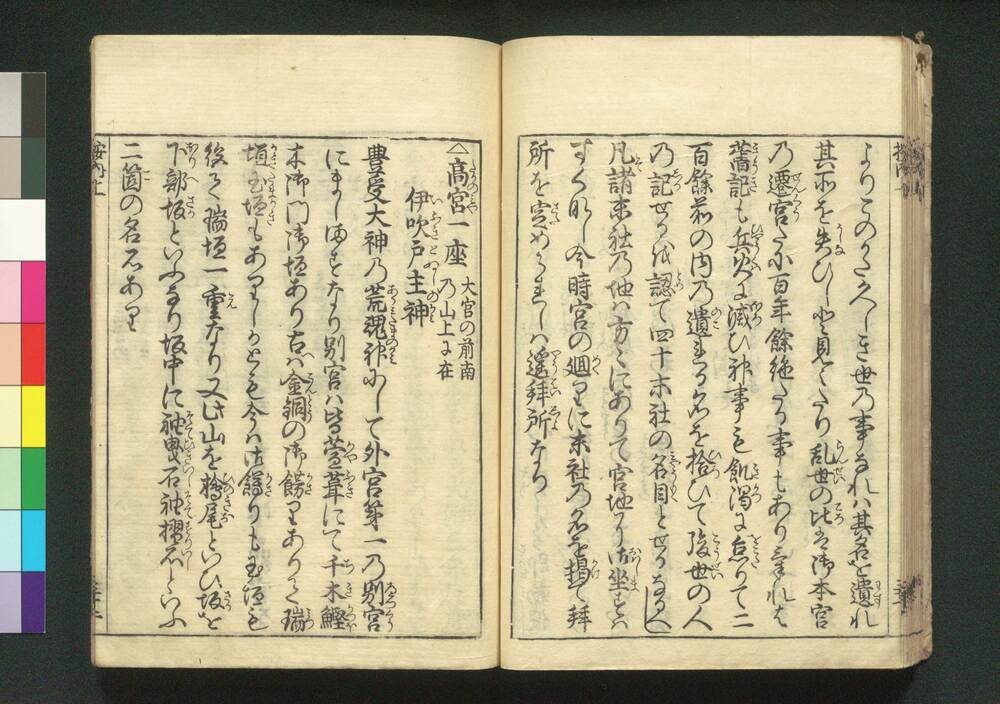 よりこのかた久しき世の事なれハ其名を遺れ
其所を失ひしと見えたり乱世の比ハ御本宮
乃遷宮さへ百年餘絶たる事もありけれは
舊記も兵火に滅ひ神事も飢渇に怠りて二
百餘前の内乃遺れる名を拾ひて後世の人
乃記せるを認て四十末社の名目とせるなるへし
凡諸末社乃地ハ方々にありて宮地に御坐をハ
すくなし今時宮の廻りに末社乃名を掲て拜
所を定められしハ遥拜所なり
高宮一座 大宮の前南
乃山上に在
伊吹戸主神
豊受大神乃荒魂神にして外宮第一乃別宮
にましますなり別宮ハ皆萱葺にて千木鰹
木御門御垣あり古ハ金銅の御餝りありて瑞
垣玉垣もありしかとも今ハ御餝りも玉垣も
後えて瑞垣一重なり又此山を檜尾といひ坂を
下部坂といふなり坂中に袖曳石袖摺石といふ
二箇の名石あり